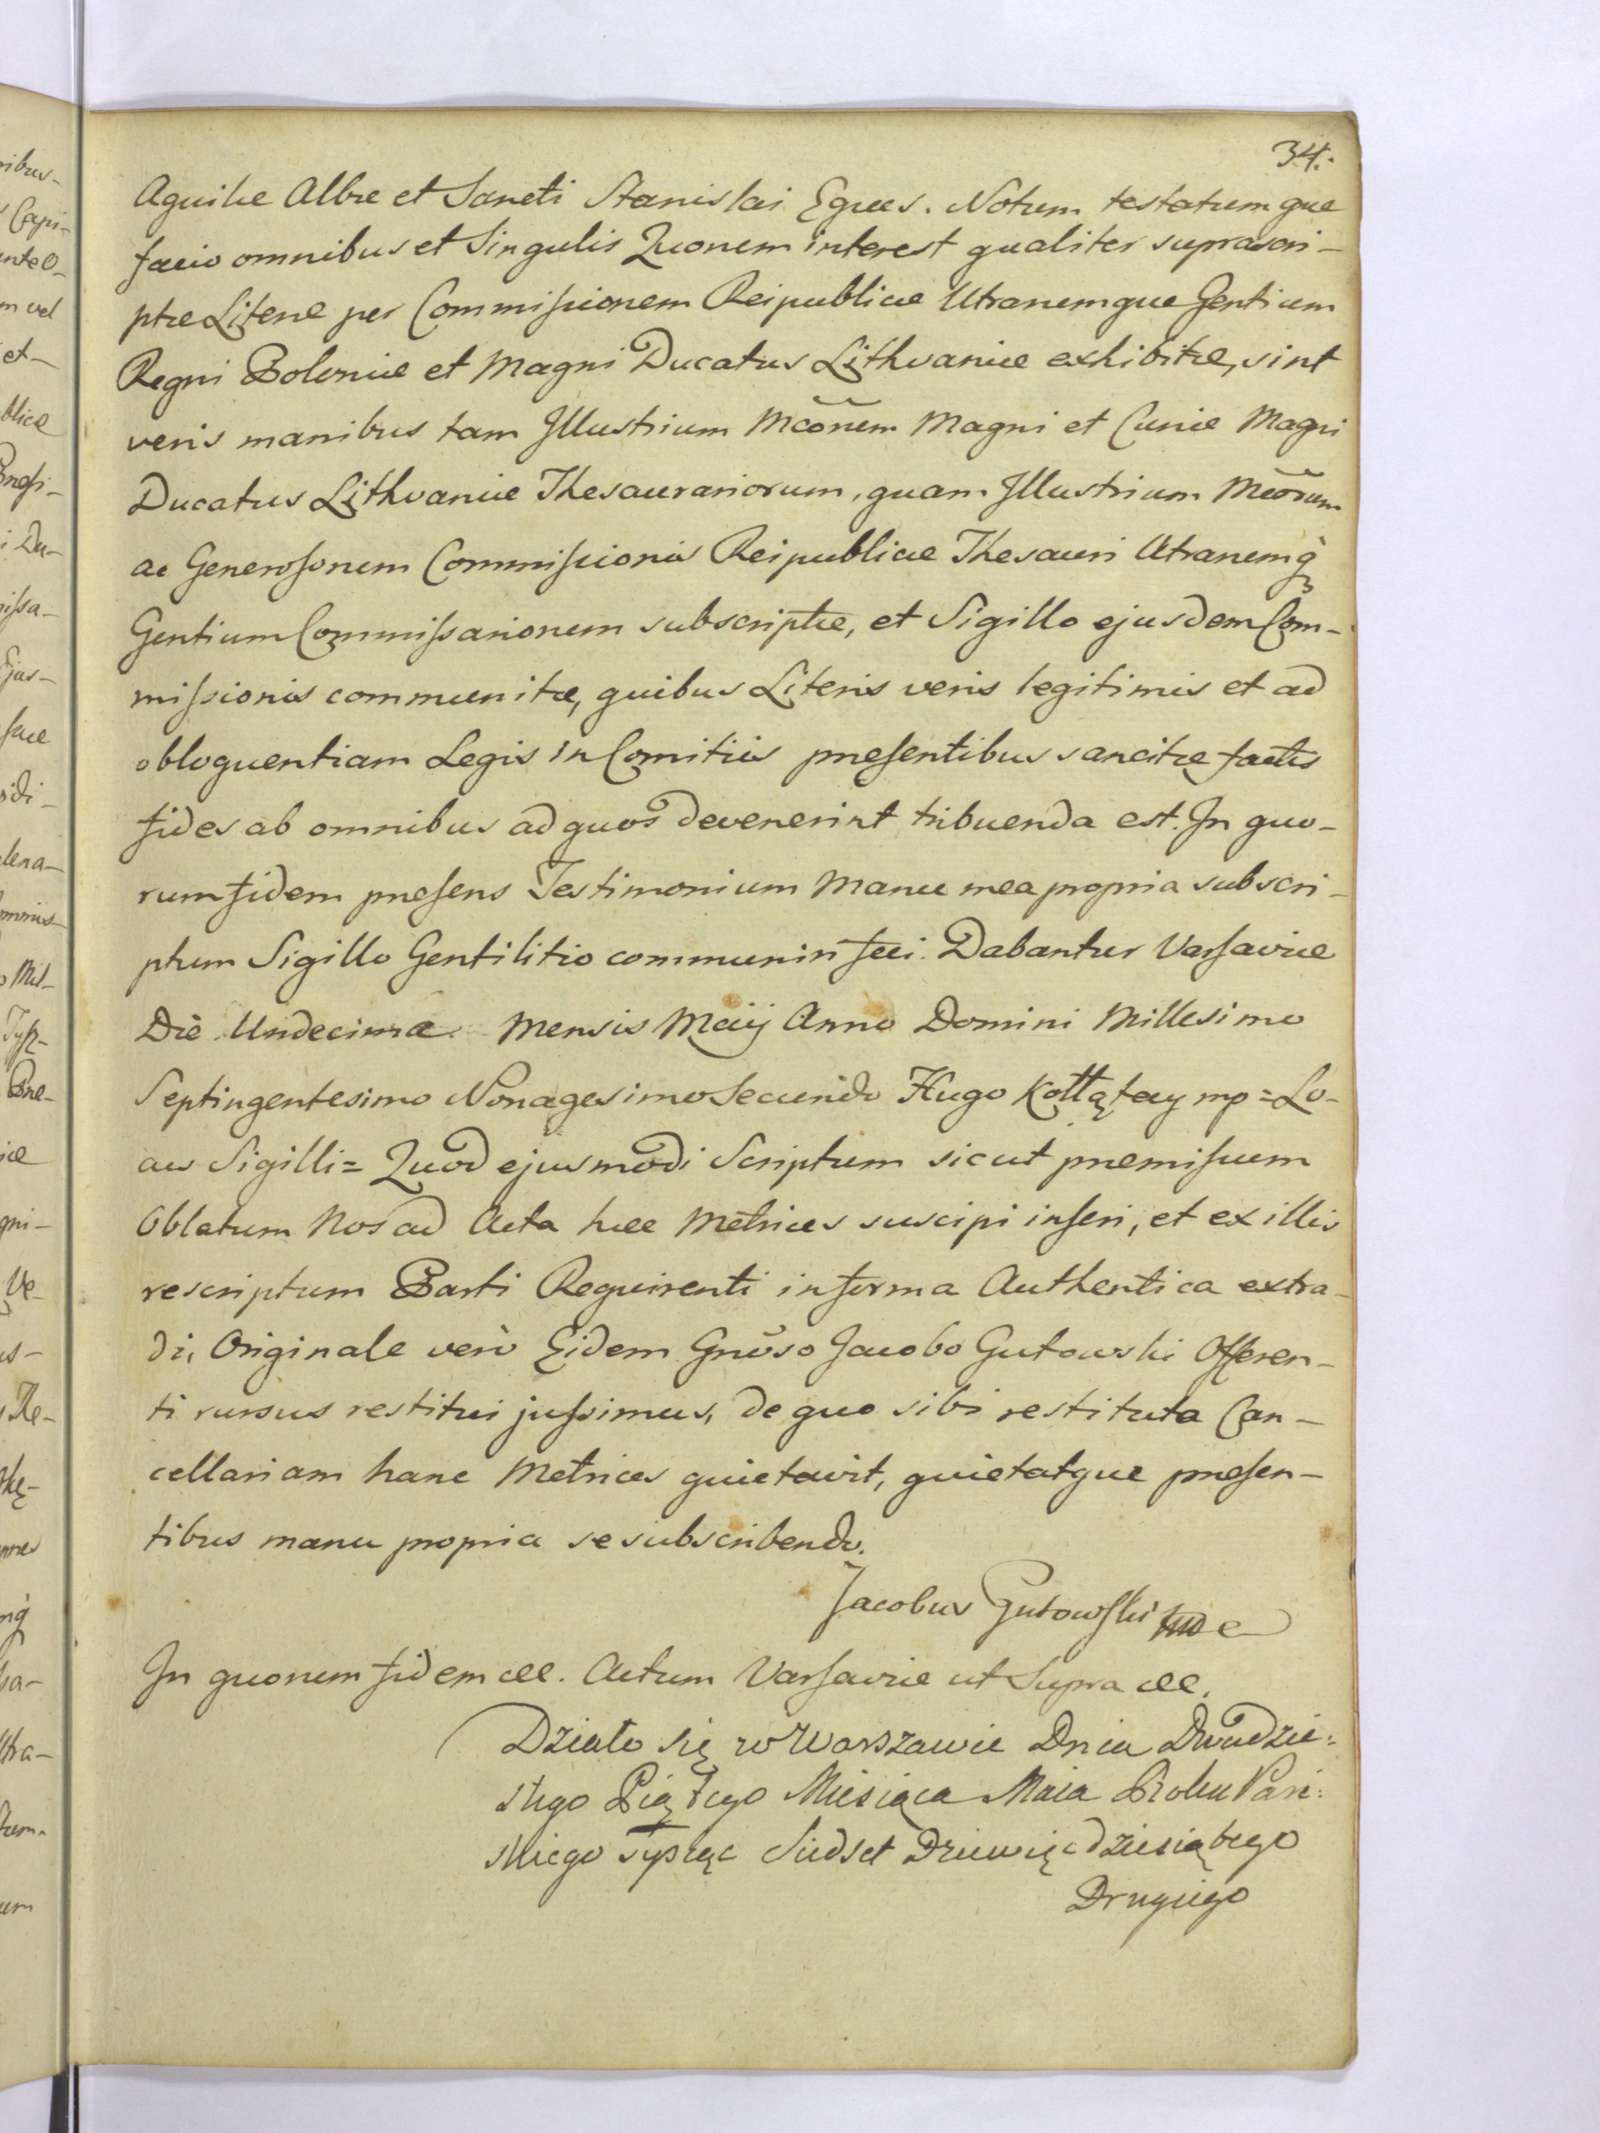 34.
Aquilæ Albæ et Sancti Stanislai Eques. Notum testatumque
facio omnibus et Singulis Quorum interest qualiter suprascri-
ptæ Literæ per Commissionem Reipublicæ Utrarumque Gentium
Regni Poloniæ et Magni Ducatus Lithvaniæ exhibitæ, sint
veris manibus tam Illustrium Mcõrum Magni et Curiæ Magni
Ducatus Lithvaniæ Thesaurariorum, quam Illustrium Mcõrum
ac Generosorum Commissionis Reipublicæ Thesauri Utrarumq̀
Gentium Commissariorum subscriptæ, et Sigillo ejusdem Com-
missionis communitæ, quibus Literis veris legitimis et ad
obloquentiam Legis in Comitiis presentibus sancitæ factis
fides ab omnibus ad quos devenerint tribuenda est. In quo-
rum fidem presens Testimonium Manu mea propria subscri-
ptum Sigillo Gentilitio communiri feci. Dabantur Varsaviæ
Die Undecima Mensis Maij Anno Domini Millesimo
Septingentesimo Nonagesimo Secundo Hugo Kołłątay mp = Lo-
cus Sigilli = Quod ejusmodi Scriptum sicut premissum
Oblatum Nos ad Acta hæc Metrices suscipi inseri, et ex illis
rescriptum Parti Requirenti in forma Authentica extra-
di, Originale verò Eidem Gnõso Jacobo Gutowski Offeren-
ti rursus restitui jussimus, de quo sibi restituto Can-
cellariam hanc Metrices quietavit, quietatque presen-
tibus manu propria se subscribendo.
Jacobus Gutowski
In quorum fidem &c. Actum Varsaviæ ut Supra &c.
Działo się w Warszawie Dnia Dwudzie-
stego Piątego Miesiąca Maia Roku Pań-
skiego Tysiąc Siedset Dziewięćdziesiątego
Drugiego